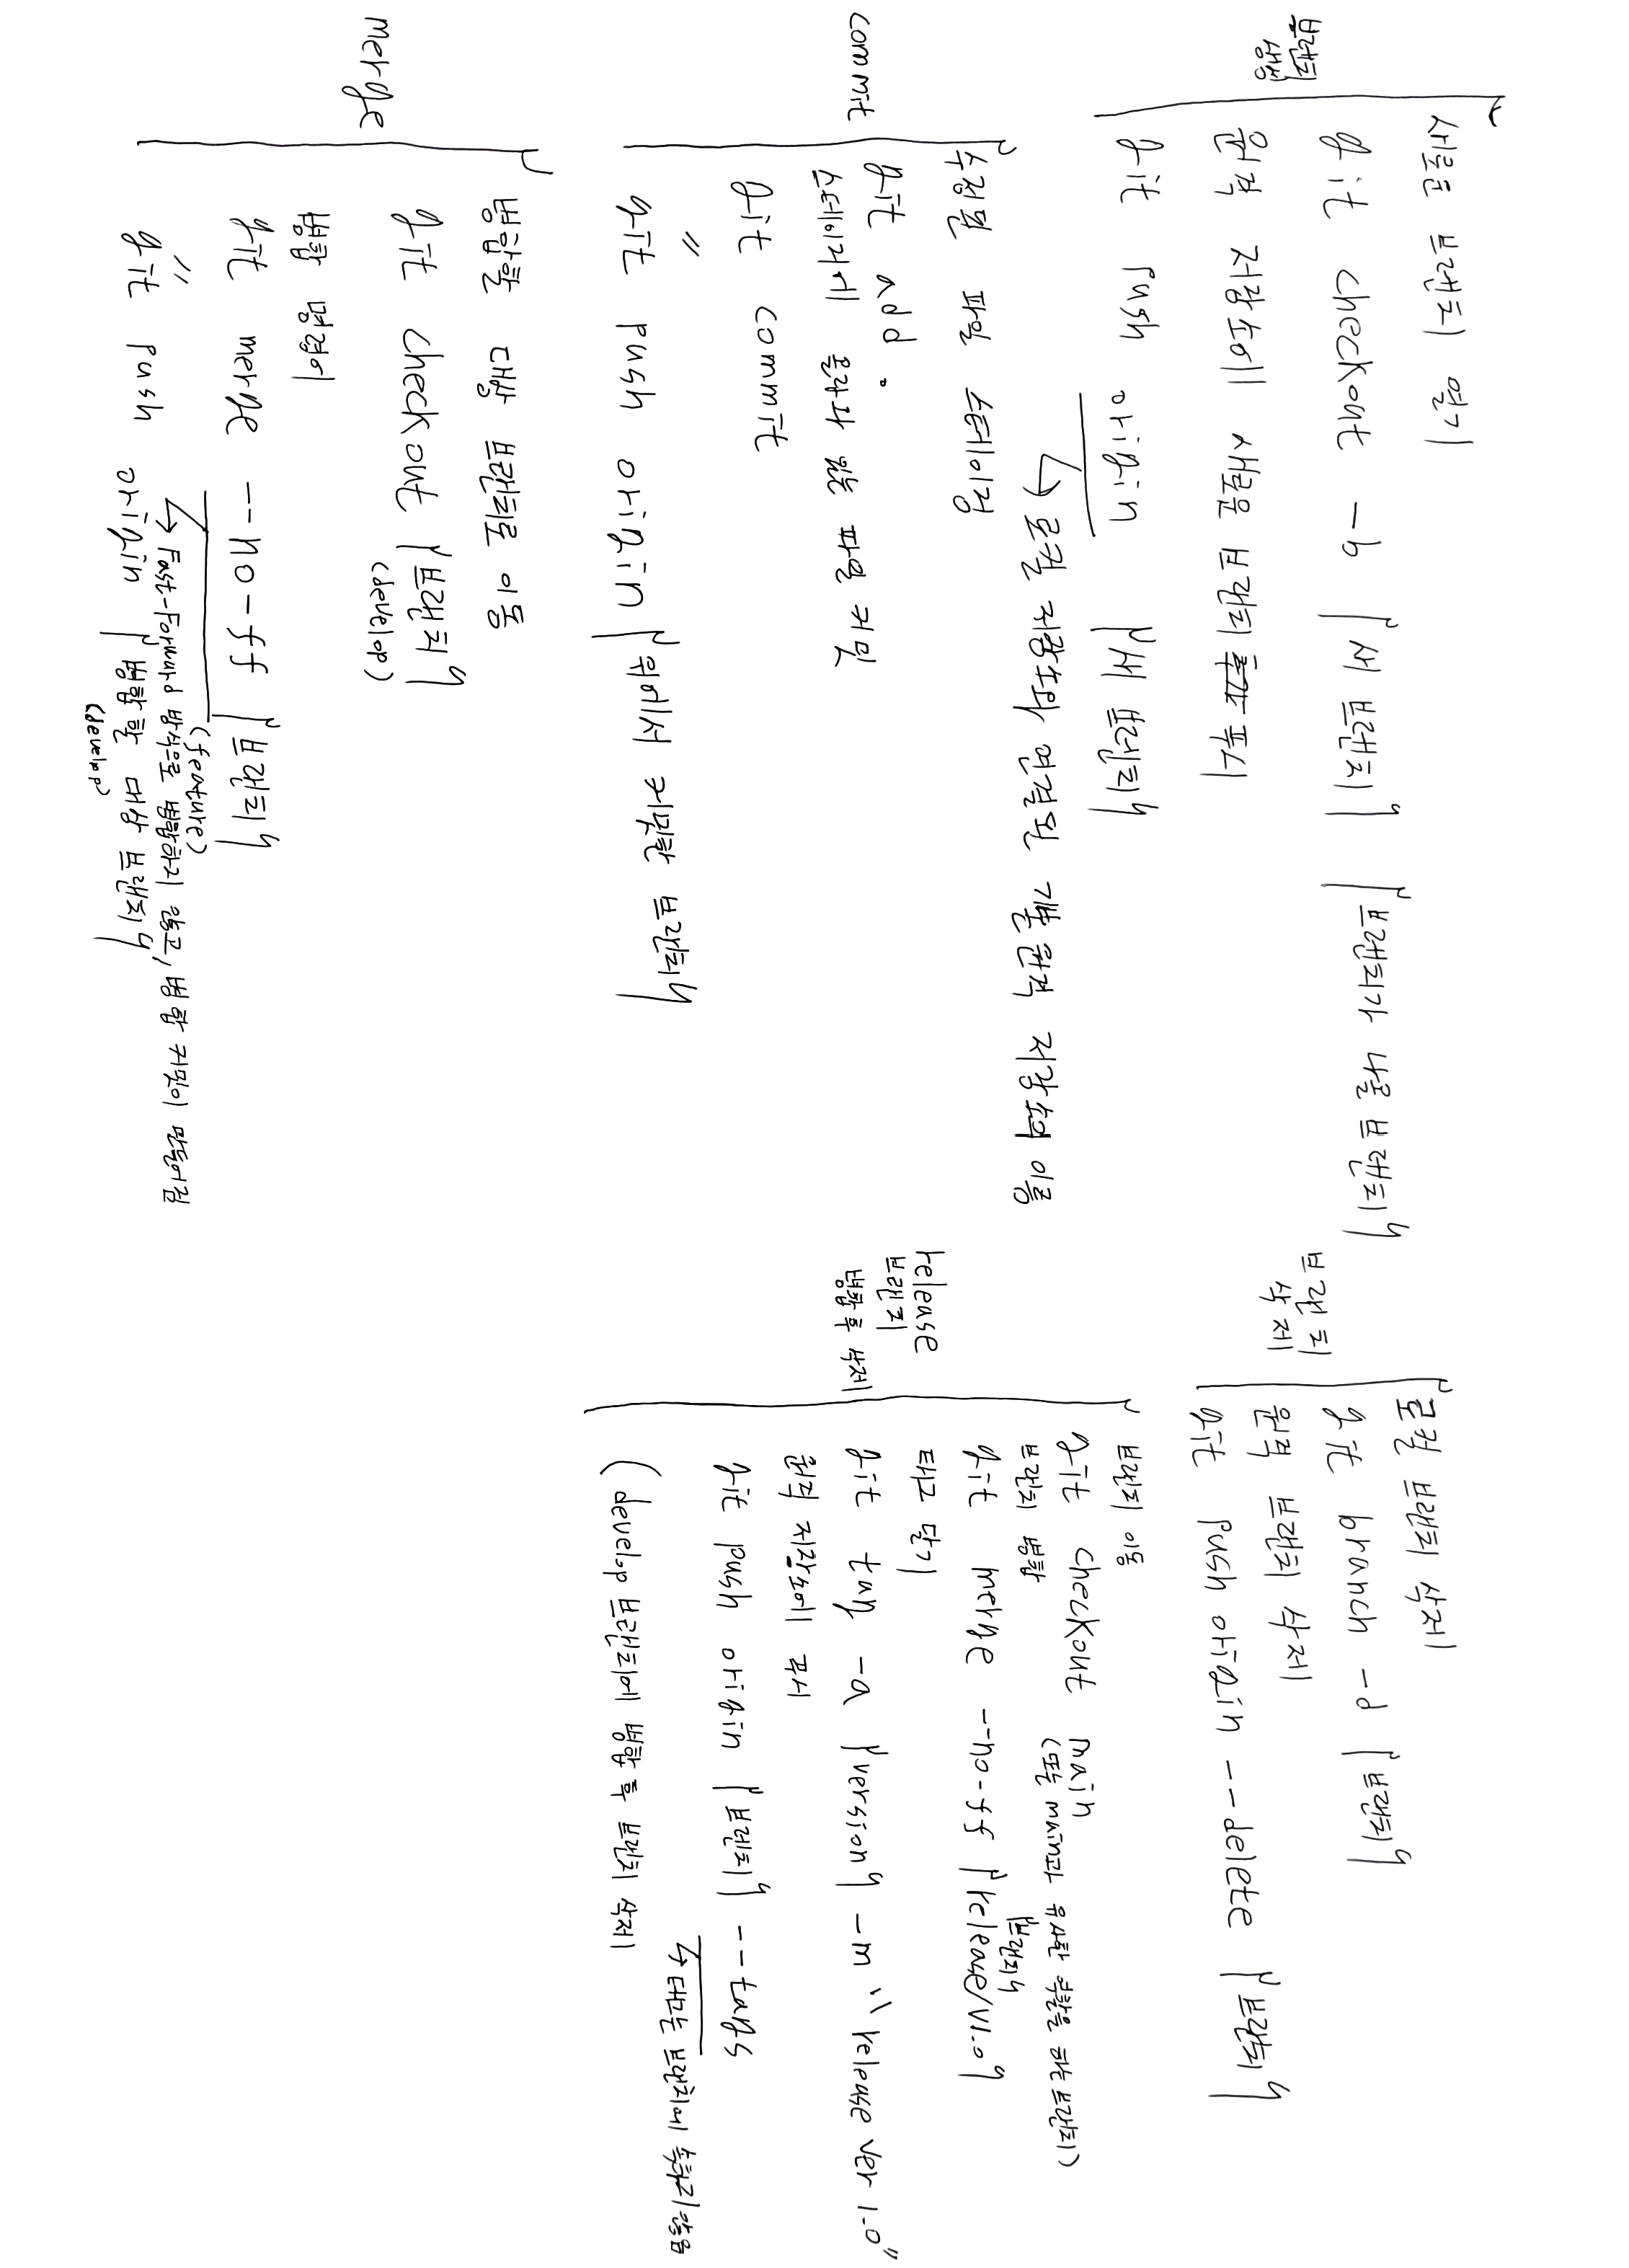 브랜치
생성
새로운 브랜치 열기
git checkout -b {새 브랜치} {브랜치가 나올 브랜치}
원격 저장소에 새로운 브랜치 추가 푸시
git push origin {새 브렌치}
↳ 로컬 저장소와 연결된 기본 원격 저장소의 이름
commit
수정된 파일 스테이징
git add .
스테이지에 올라와 있는 파일 커밋
git commit
〃
git push origin {위에서 커밋한 브랜치}
merge
병합할 대상 브랜치로 이동
git checkout {브랜치}
(develop)
병합 명령어
git merge --no-ff {브랜치}
(feature)
↳ Fast-Forward 방식으로 병합하지 않고, 병합 커밋이 만들어짐
〃
git push origin {병합할 대상 브랜치}
(develop)
브랜치
삭제
로컬 브랜치 삭제
git branch -d {브랜치}
원격 브랜치 삭제
git push origin --delete {브랜치}
release
브랜치
병합 후 삭제
브랜치 이동
git checkout main
(또는 main과 유사한 역할을 하는 브랜치)
브랜치 병합
{브랜치}
git merge --no-ff {release/v1.0}
태그 달기
git tag -a {version} -m "release ver 1.0"
원격 저장소에 푸시
git push origin {브랜치} --tags
↳ 태그는 브랜치에 속하지 않음
(develop 브랜치에 병합 후 브랜치 삭제